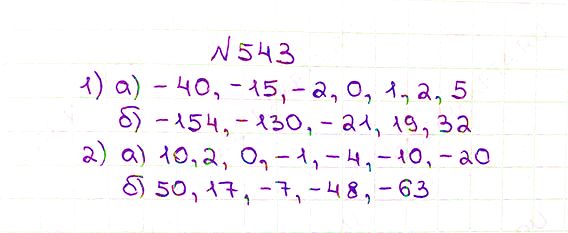 №543
1) а) -40, -15, -2, 0, 1, 2, 5
б) -154, -130, -21, 19, 32
2) а) 10, 2, 0, -1, -4, -10, -20
б) 50, 17, -7, -48, -63